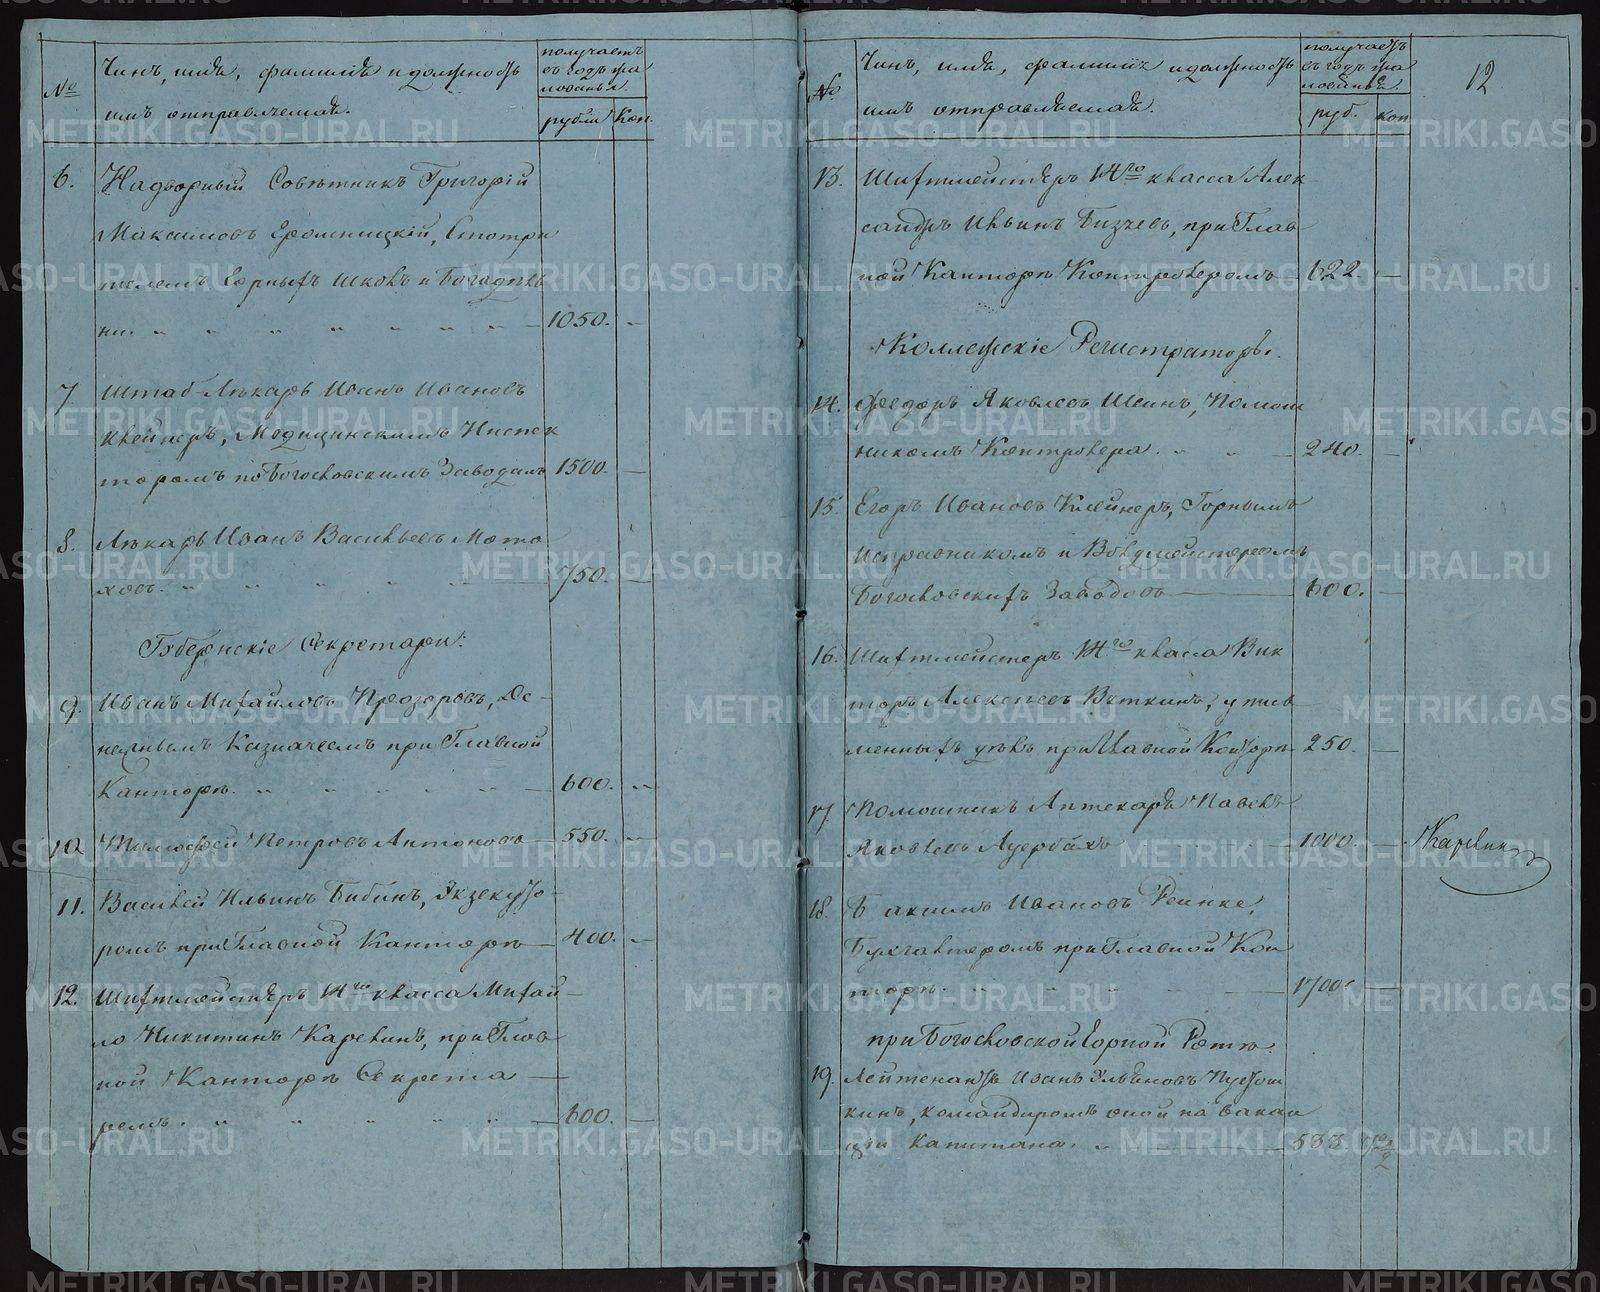 №
Чинъ, имя, фамилія и должность
имъ отправляемая.
получаетъ
въ годъ жа
лованья.
рубли Коп.
6. Надворный Совѣтникъ Григорій
Максимовъ Смотри
телемъ Горныхъ школъ и Богадѣль
ни. 1050.
7. Штаб-Лѣкарь Иванъ Ивановъ
Клейнеръ, Медицинскимъ Инспек
торомъ по Богословскимъ Заводамъ 1500.
8. Лѣкарь Иванъ Васильевъ Мото
ховъ. 750.
Губернскіе Секретари:
9. Иванъ Михайловъ Прозоровъ, Де-
нежнымъ Казначеемъ при Главной
Канторѣ. 600.
10. Тимофей Петровъ Антоновъ 550.
11. Василей Ильинъ Бибинъ, Экзекуто-
ромъ при Главной Канторѣ 400.
12. Шихтмейстеръ 14го класса Михай-
ло Никитинъ Карелинъ, при Глав
ной Канторѣ Секрета
ремъ. 600.
№
12
Чинъ, имя, фамилія и должность
имъ отправляемая.
получаетъ
въ годъ жа
лованья.
руб. коп
13. Шихтмейстеръ 14го класса Алек-
сандръ Ильинъ при Глав
ной Канторѣ Контролеромъ 622.
Коллежскіе Регистраторы.
14. Федоръ Яковлевъ Шеинъ, Помощ
никомъ Контролера. 240.
15. Егоръ Ивановъ Клейнеръ, Горнымъ
Исправникомъ и Вальдмейстеромъ
Богословскихъ Заводовъ 600.
16. Шихтмейстеръ 14го класса Вик
торъ Алексѣевъ Вяткинъ, у пись
менныхъ дѣлъ при Главной Конторѣ 250.
17. Помошникъ Аптекаря Павелъ
Яковлевъ Ауербахъ 1000.
Карелин
18. Ивановъ Реинке,
Бухгалтеромъ при Главной Кон
торѣ. 1700.
при Богословской Горной Ротѣ.
19. Лейтенантъ Иванъ Пустош
кинъ, командиромъ оной на вакан
ціи Капитана. 533